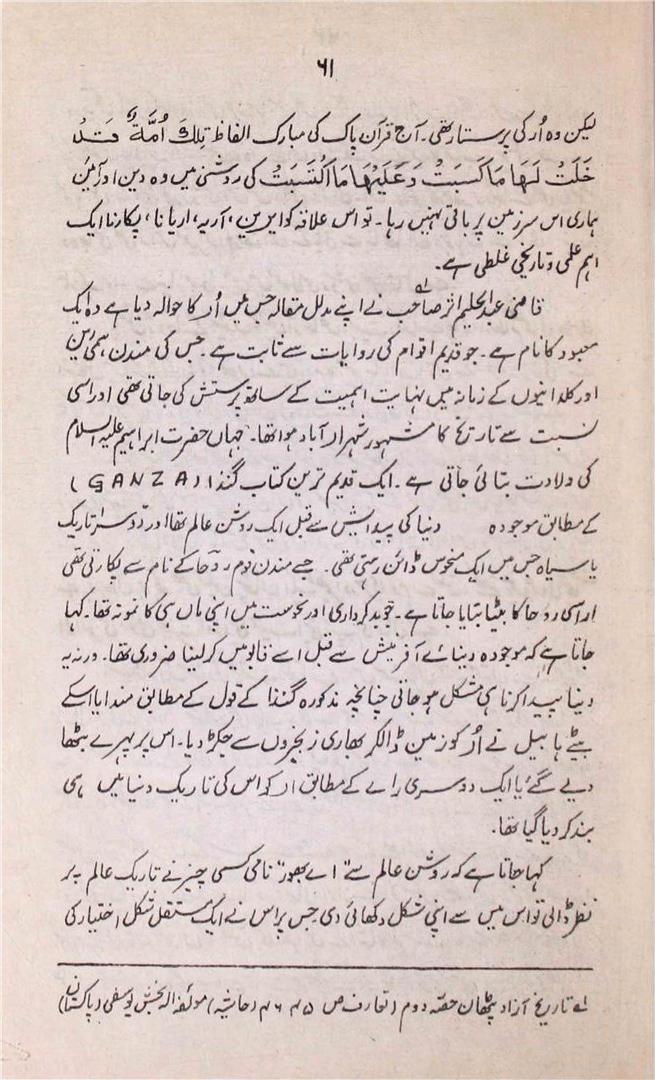 ۶۱
لیکن وہ اُر کی پرستار تھی۔ آج قرآن پاک کی مبارک الفاظ تِلْكَ اُمَّةٌ قَدْ
خَلَتْ لَهَا مَا كَسَبَتْ وَعَلَيْهَا مَا اكْتَسَبَتْ کی روشنی میں وہ دین اور آئین
ہماری اس سرزمین پر باقی نہیں رہا۔ تو اس علاقہ کو ایرین، آریہ، اریانا، پکارنا ایک
اہم علمی و تاریخی غلطی ہے۔
قاضی عبدالحلیم اثر صاحب نے اپنے مدلل مقالہ جس میں اُر کا حوالہ دیا ہے وہ ایک
معبود کا نام ہے۔ جو قدیم اقوام کی روایات سے ثابت ہے۔ جس کی مندن، سمی این
اور کلدانیوں کے زمانہ میں نہایت اہمیت کے ساتھ پرستش کی جاتی تھی اور اسی
نسبت سے تاریخ کا مشہور شہر ار آباد ہوا تھا۔ جہاں حضرت ابراہیم علیہ السلام
کی ولادت بتائی جاتی ہے۔ ایک قدیم ترین کتاب گنذا (GANZA)
کے مطابق موجودہ دنیا کی پیدایش سے قبل ایک روشن عالم تھا اور دوسرا تاریک
یا سیاہ جس میں ایک منحوس ڈائن رہتی تھی۔ جسے مندن قوم روحا کے نام سے پکارتی تھی
ار اسی روحا کا بیٹا بتایا جاتا ہے۔ جو بدکرداری اور نحوست میں اپنی ماں ہی کا نمونہ تھا۔ کہا
جاتا ہے کہ موجودہ دنیائے آفرینش سے قبل اسے قابو میں کر لینا ضروری تھا۔ ورنہ یہ
دنیا پیدا کرنا ہی مشکل ہو جاتی چنانچہ مذکورہ گنذا کے قول کے مطابق مندایا اسکے
بیٹے ہابیل نے اُر کو زمین ڈالکر بھاری زنجیروں سے جکڑ دیا۔ اس پر پہرے بٹھا
دیے گئے یا ایک دوسری رائے کے مطابق ار کو اس کی تاریک دنیا میں ہی
بند کر دیا گیا تھا۔
کہا جاتا ہے کہ روشن عالم سے "اے بھور" نامی کسی چیز نے تاریک عالم پر
نظر ڈالی تو اس میں سے اپنی شکل دکھائی دی جس پر اس نے ایک مستقل شکل اختیار کی
لے تاریخ آزاد پٹھان حصہ دوم (تعارف ص ۴۵، ۴۶ (حاشیہ) مولفہ اللہ بخش یوسفی (پاکستان)